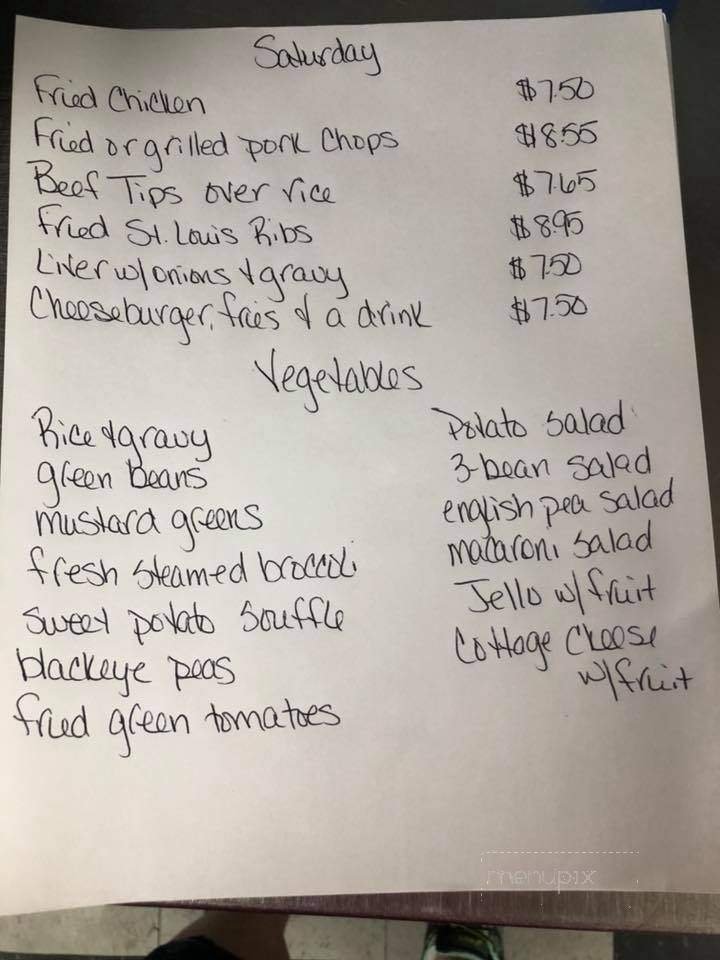 Saturday
Fried Chicken $7.50
Fried or grilled pork Chops $8.55
Beef Tips over rice $7.65
Fried St. Louis Ribs $8.95
Liver w/onions & gravy $7.50
Cheeseburger, fries & a drink $7.50
Vegetables
Rice & gravy
green beans
mustard greens
fresh steamed broccoli
sweet potato souffle
blackeye peas
fried green tomatoes
Potato salad
3-bean salad
english pea salad
macaroni salad
Jello w/fruit
Cottage Cheese
w/fruit
menupix